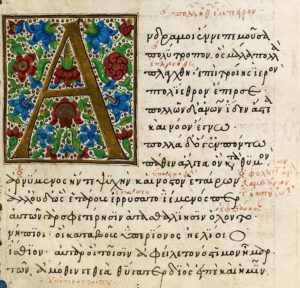 Ἄ
νδρα μοι ἔννεπε μοῦσα
πολύτροπον. ὃς μάλα πολλὰ
πλάγχθη. ἐπεὶ τροίης ἱερὸν
πτολίεθρον ἔπερσε
πολλῶν δ' ἀνων ἴδεν ἄστεα
καὶ νόον ἔγνω
πολλὰ δ' ὅγ' ἐν πόντω
πάθεν ἄλγεα ὃν κατὰ θυμὸν
ἀρνύμενος ἥν τε ψυχὴν καὶ νόστον ἑταίρων
ἀλλ' οὐδ' ὣς ἑτάρους ἐρρύσατο ἱέμενός περ
αὐτῶν γὰρ σφετέρησιν ἀτασθαλίησιν ὄλοντο
νήπιοι. οἳ κατὰ βοῦς ὑπερίονος ἠελίοιο
ἤσθιον αὐτὰρ ὁ τοῖσιν ἀφείλετο νόστιμον ἦμαρ
τῶν. ἁμόθεν γε θεὰ θύγατερ διὸς εἰπὲ καὶ ἡμῖν